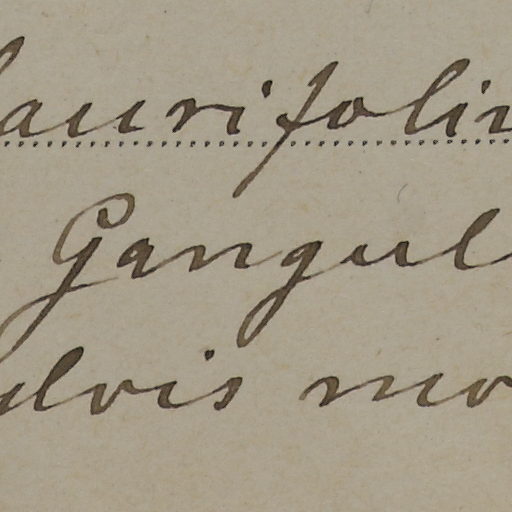 laurifoliu
Gangul
elvis mo